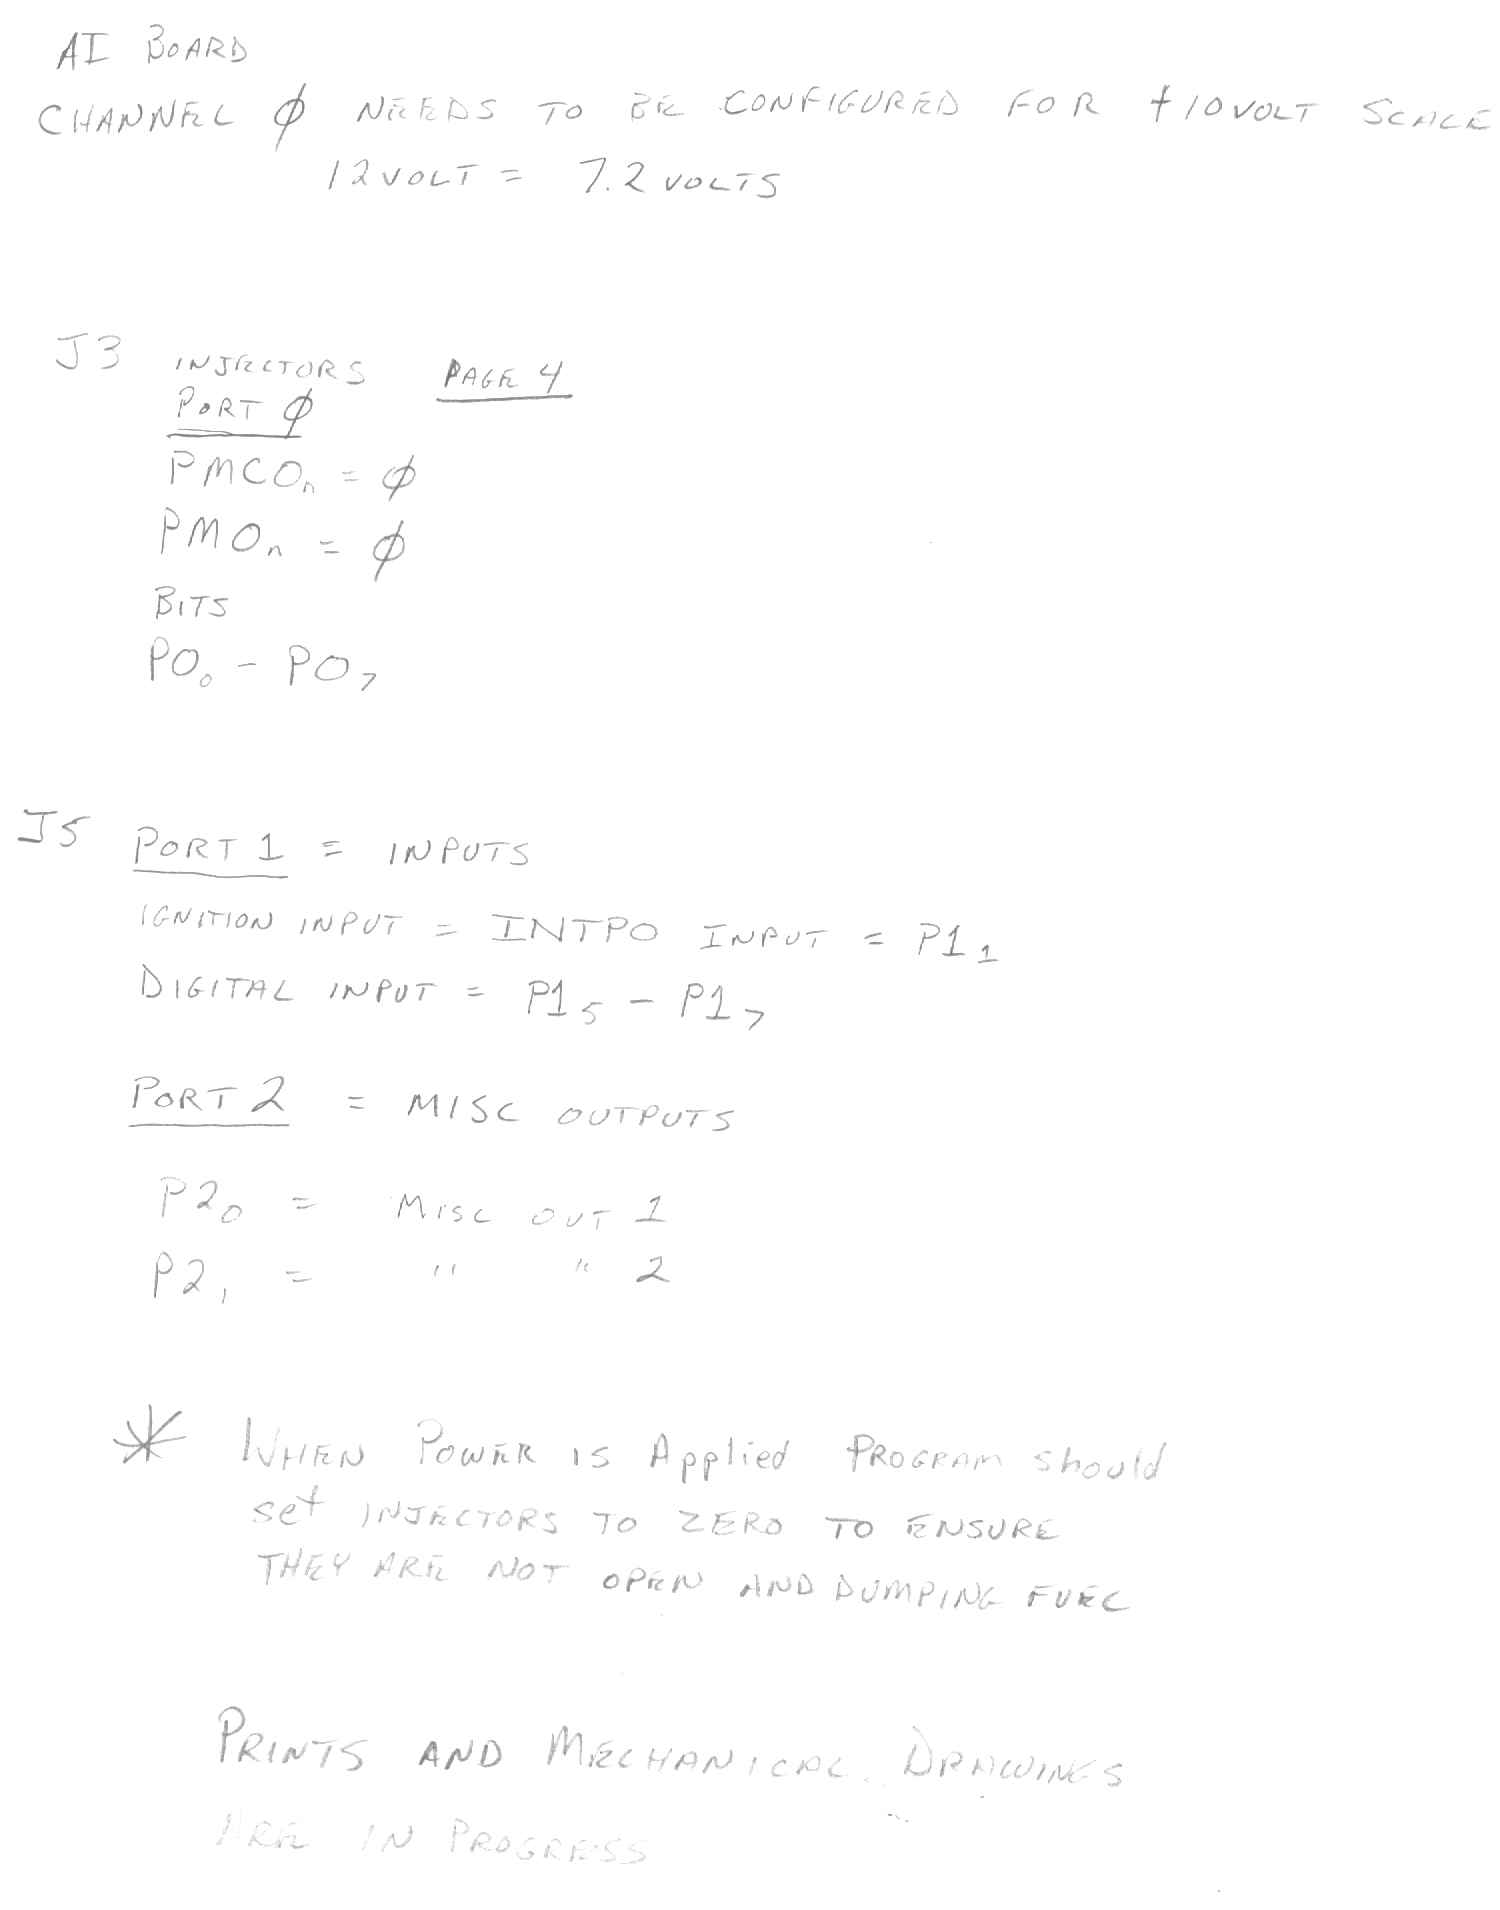 AI BOARD
CHANNEL Ø NEEDS TO BE CONFIGURED FOR +10VOLT SCALE
12VOLT = 7.2 VOLTS
J3 INJECTORS PAGE 4
PORT Ø
PMCOₙ = Ø
PMOₙ = Ø
BITS
PO₀ - PO₇
J5 PORT 1 = INPUTS
IGNITION INPUT = INTPO INPUT = P1₁
DIGITAL INPUT = P1₅ - P1₇
PORT 2 = MISC OUTPUTS
P2₀ = MISC OUT 1
P2₁ = " " 2
* WHEN POWER IS Applied PROGRAM should
set INJECTORS TO ZERO TO ENSURE
THEY ARE NOT OPEN AND DUMPING FUEL
PRINTS AND MECHANICAL DRAWINGS
ARE IN PROGRESS